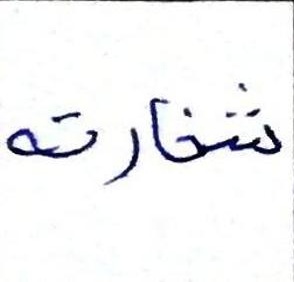 شغارته